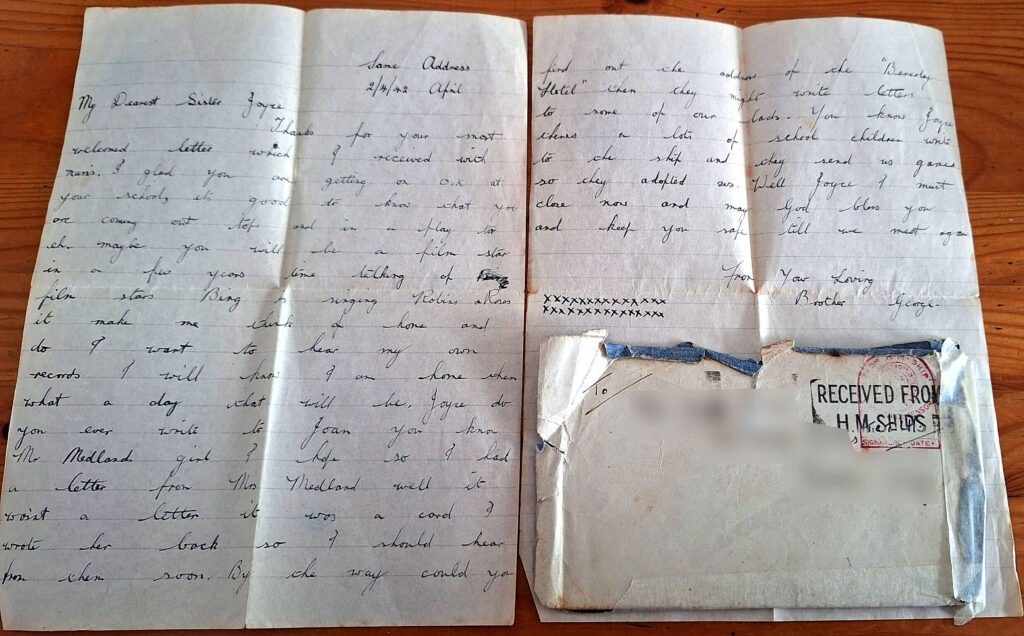 Same Address
2/4/42 April
My Dearest Sister Joyce
Thanks for your most
welcomed letter which I received with
mums. I glad you are getting on O.K at
your school, its good to know that you
are coming out top and in a play to
eh. maybe you will be a film star
in a few years time talking of
film stars Bing is singing Robins & Roses
it make me think of home and
do I want to hear my own
records I will know I am home then
what a day that will be. Joyce do
you ever write to Joan you know
Mr Medlands girl I hope so I had
a letter from Mrs Medland well it
wasnt a letter it was a card I
wrote her back so I should hear
from them soon. By the way could you
find out the address of the "Beverley
Hotel" then they might write letters
to some of our lads. You know Joyce
theres a lots of school children write
to the ship and they send us games
so they adopted us. Well Joyce I must
close now and may God bless you
and keep you safe till we meet again
From Your Loving
Brother George.
xxxxxxxxxxxxxxxx
xxxxxxxxxxxxxxxx
To
RECEIVED FROM
H.M.SHIPS